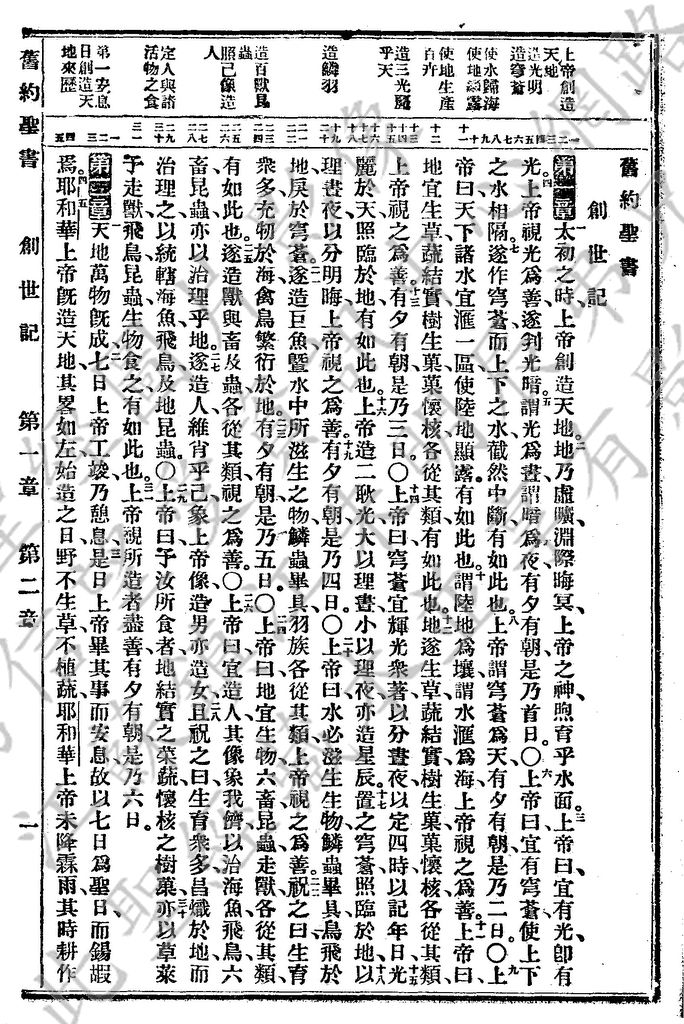 舊約聖書
創世記
第一章 太初之時、上帝創造天地、地乃虛曠、淵際晦冥、上帝之神煦育乎水面。上帝曰、宜有光、卽有
光、上帝視光爲善、遂判光暗、謂光爲晝、謂暗爲夜、有夕有朝、是乃首日。〇上帝曰、宜有穹蒼、使上下
之水相隔、遂作穹蒼、而上下之水截然中斷、有如此也、上帝謂穹蒼爲天、有夕有朝、是乃二日。〇上
帝曰、天下諸水宜滙一區、使陸地顯露、有如此也、謂陸地爲壤、謂水滙爲海、上帝視之爲善。上帝曰、
地宜生草蔬結實、樹生菓、菓懷核、各從其類、有如此也、地遂生草蔬結實、樹生菓、菓懷核、各從其類、
上帝視之爲善、有夕有朝、是乃三日。〇上帝曰、穹蒼宜輝光衆著、以分晝夜、以定四時、以記年日、光
麗於天、照臨於地、有如此也。上帝造二耿光、大以理晝、小以理夜、亦造星辰、置之穹蒼、照臨於地、以
理晝夜、以分明晦、上帝視之爲善、有夕有朝、是乃四日。〇上帝曰、水必滋生生物、鱗蟲畢具、鳥飛於
地、戾於穹蒼、遂造巨魚、曁水中所滋生之物、鱗蟲畢具、羽族各從其類、上帝視之爲善、祝之曰、生育
衆多、充牣於海、禽鳥繁衍於地、有夕有朝、是乃五日。〇上帝曰、地宜生物、六畜昆蟲走獸、各從其類、
有如此也、遂造獸與畜及蟲、各從其類、視之爲善。〇上帝曰、宜造人、其像象我儕、以治海魚飛鳥六
畜昆蟲、亦以治理乎地、遂造人、維肖乎己、象上帝像、造男亦造女、且祝之曰、生育衆多、昌熾於地、而
治理之、以統轄海魚飛鳥、及地昆蟲。〇上帝曰、予汝所食者、地結實之菜蔬、懷核之樹菓、亦以草萊
予走獸飛鳥昆蟲生物食之、有如此也、上帝視所造者盡善、有夕有朝、是乃六日。
第二章 天地萬物旣成、七日上帝工竣、乃憩息、是日上帝畢其事而安息、故以七日爲聖日、而錫嘏
焉。耶和華上帝旣造天地、其畧如左、始造之日、野不生草、不植蔬、耶和華上帝未降霖雨、其時耕作
上帝創造
天地
造光明
造穹蒼
使水歸海
使地顯露
使地生產
百卉
造三光麗
乎天
造鱗羽
造百獸昆
蟲
照己像造
人
定人與諸
活物之食
第一安息
日創造天
地來歷
舊約聖書 創世記 第一章 第二章 一